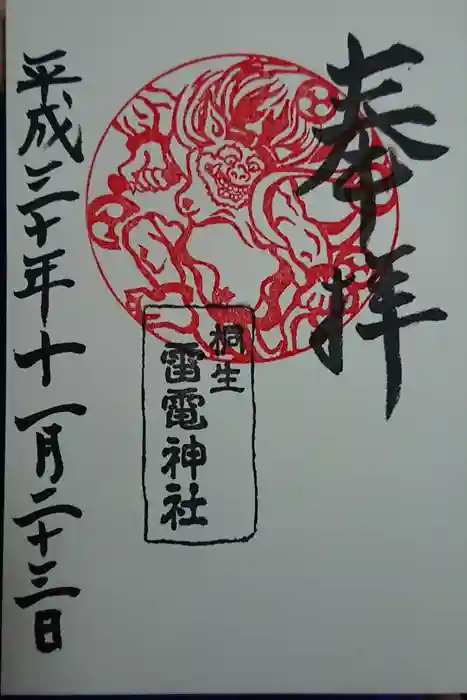 奉拝
桐生
雷電神社
平成三十年十一月二十三日